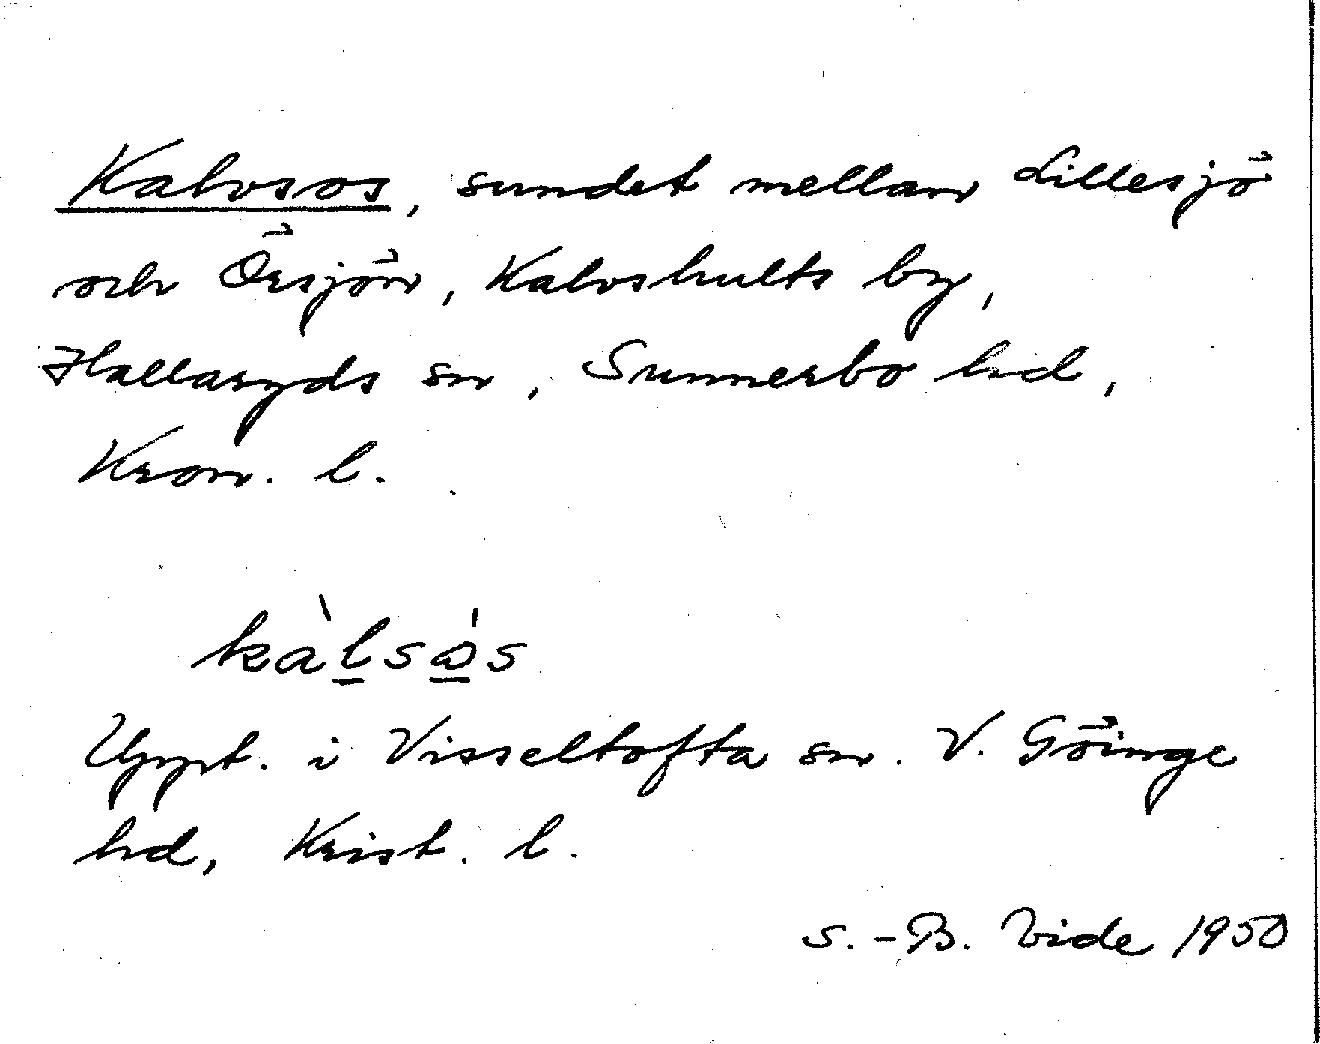 Kalvsos, sundet mellan Lillesjö
och Örsjön, Kalvshults by,
Hallaryds sn, Sunnerbo hd,
Kron. l.
kàlsós
Uppt. i Visseltofta sn. V. Göinge
hd, Krist. l.
S.-B. Vide 1950